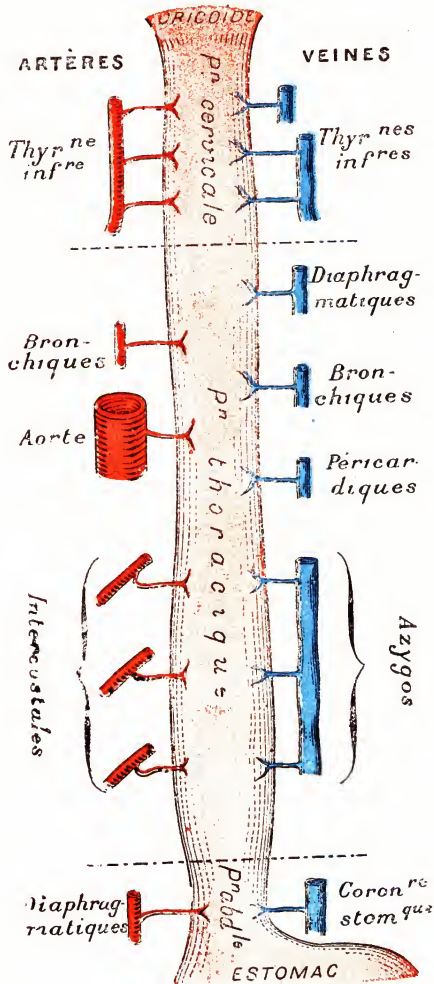 CRICOIDE
ARTÈRES
VEINES
Pn cervicale
Thyr ne
inf re
Thyr nes
infres
Diaphrag-
matiques
Bron-
chiques
Bron-
chiques
Aorte
Péricar-
diques
Pn thoracique
Intercostales
Azygos
Pn abd le
Diaphrag-
matiques
Coron re
stom que
ESTOMAC